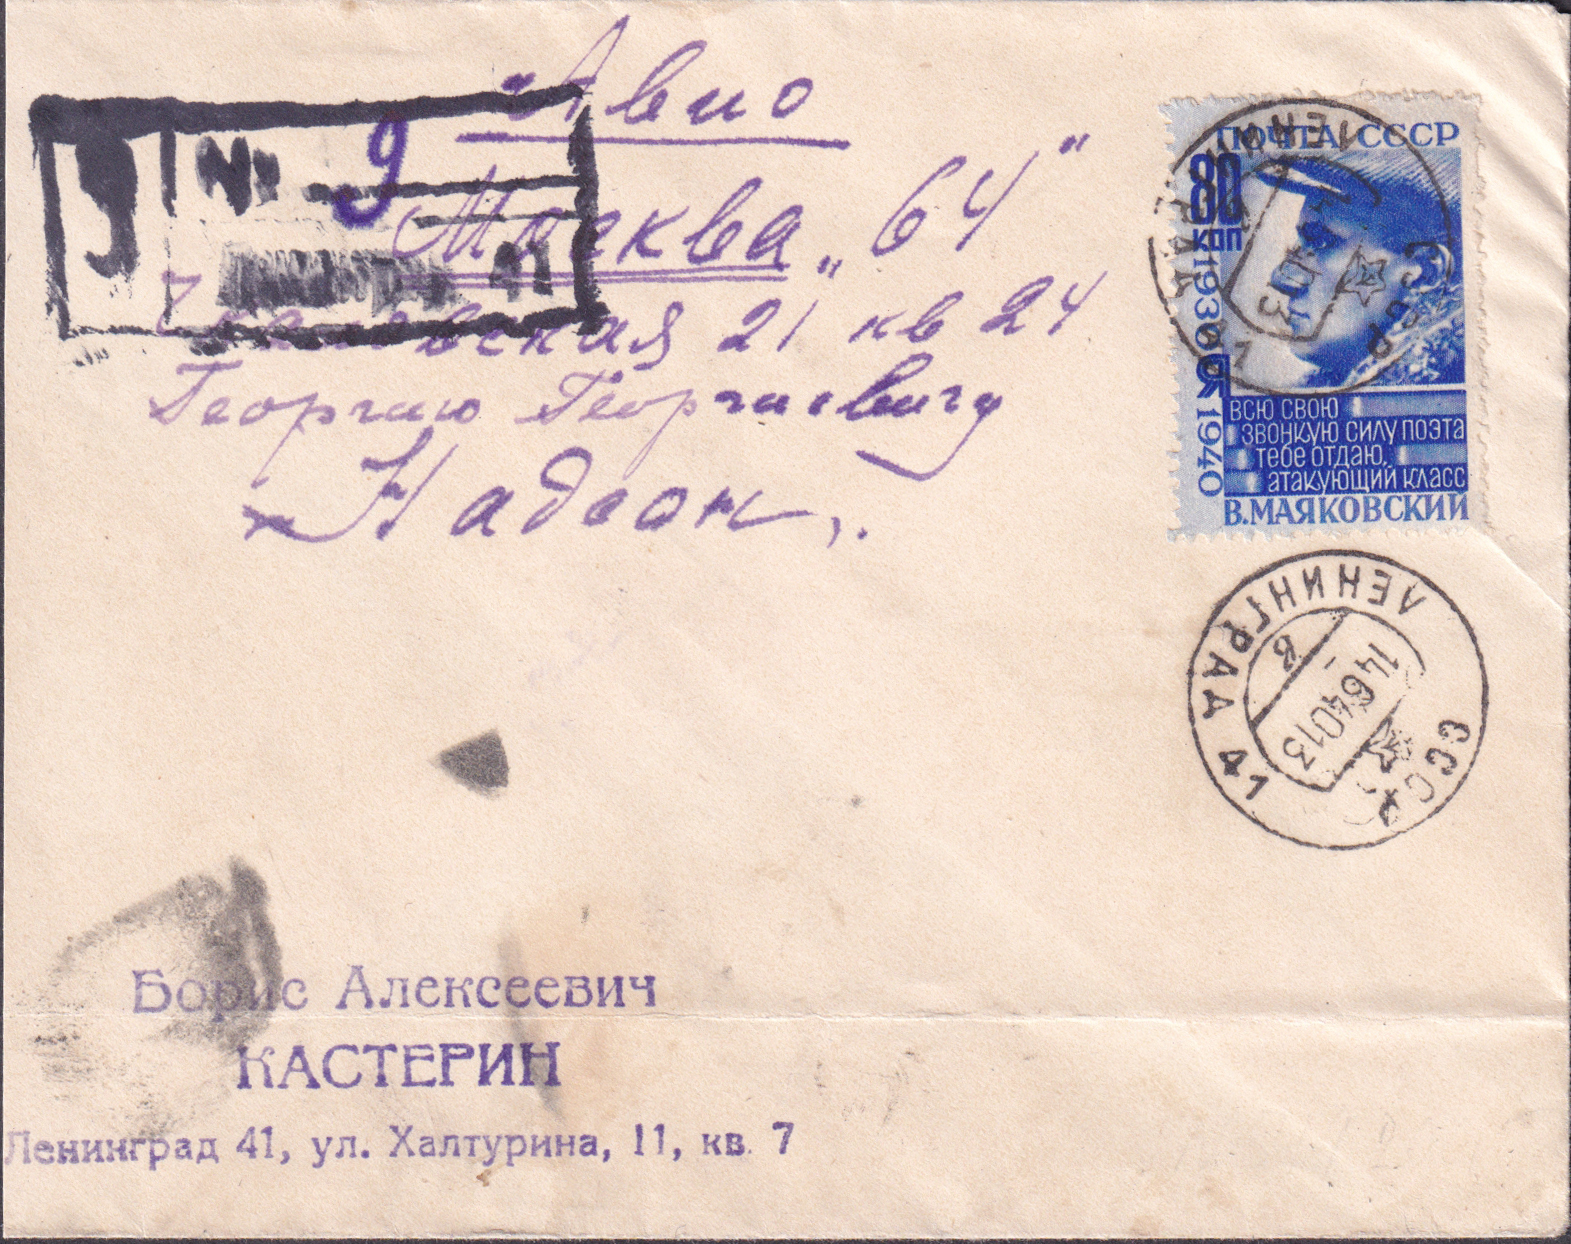 Авио
№ 9
Москва „64"
41
Чкаловская 21 кв 24
Георгию Георгиевичу
Надсон
ПОЧТА СССР
80
КОП
1930 1940
ВСЮ СВОЮ
ЗВОНКУЮ СИЛУ ПОЭТА
ТЕБЕ ОТДАЮ,
АТАКУЮЩИЙ КЛАСС
В.МАЯКОВСКИЙ
ЛЕНИНГРАД 41
СССР
13
ЛЕНИНГРАД 41
в
14 6 40 13
СССР
Борис Алексеевич
КАСТЕРИН
Ленинград 41, ул. Халтурина, 11, кв. 7